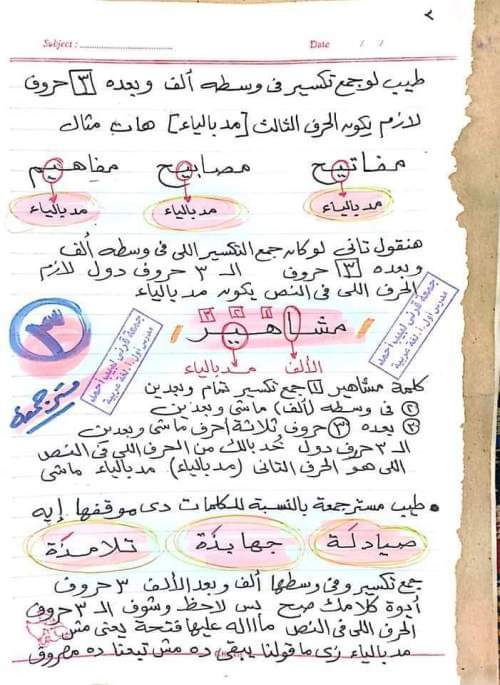 ٢
Subject : ........................ Date / /
طيب لو جمع تكسير فى وسطه ألف وبعده [٣] حروف
لازم يكون الحرف الثالث [مد بالياء] هات مثال
مفاتيح مصابيح مفاهيم
مد بالياء مد بالياء مد بالياء
هنقول تانى لو كان جمع التكسير اللى فى وسطه ألف
وبعده [٣] حروف الـ ٣ حروف دول لازم
الحرف اللى فى النص يكون مد بالياء
١ ٢ ٣
مشاهير
الألف مد بالياء
٣
مستر جمعة
جمعة قرنى لبيب أحمد
مدرس أول أ. لغة عربية
جمعة قرنى لبيب أحمد
مدرس أول أ. لغة عربية
كلمة مشاهير ① جمع تكسير تمام وبعدين
② فى وسطه (ألف) ماشى وبعدين
③ بعده ③ حروف ثلاثة أحرف ماشى وبعدين
الـ ٣ حروف دول خد بالك من الحرف اللى فى النص
اللى هو الحرف التانى (مد بالياء) مد بالياء ماشى
• طيب مستر جمعة بالنسبة للكلمات دى موقفها إيه
صيادلة جهابذة تلامذة
جمع تكسير وفى وسطها ألف وبعد الألف ٣ حروف
أيوة كلامك صح بس لاحظ وشوف الـ ٣ حروف
الحرف اللى فى النص مااله عليها فتحة يعنى مش
مد بالياء زى ما قولنا يبقى ده مش تبعنا ده مصروف